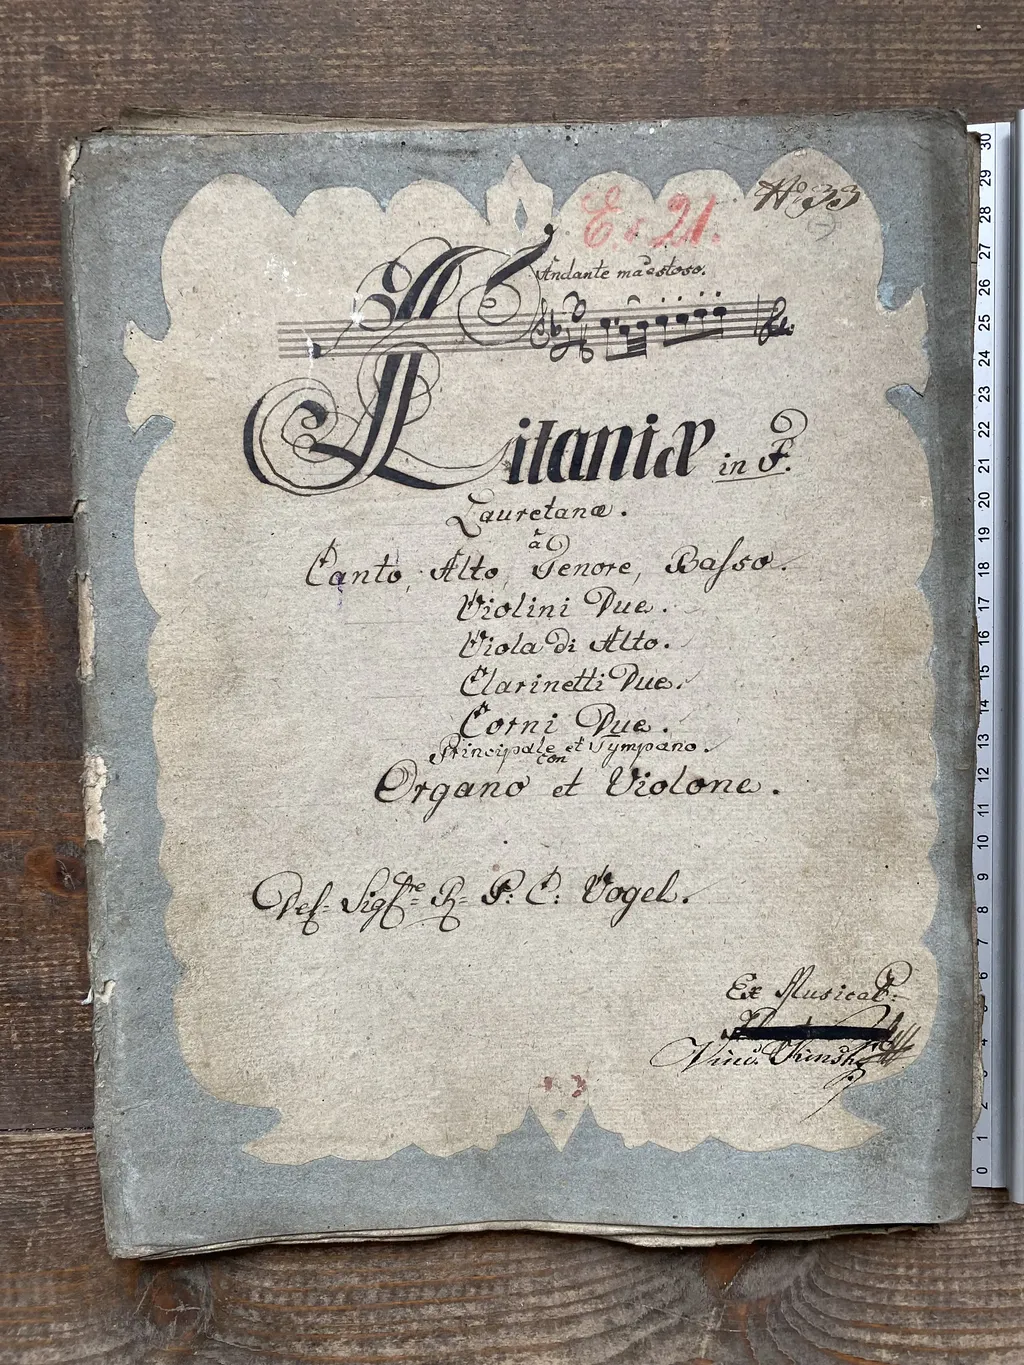 E. 21.
No 33
Andante maestoso.
Litaniæ in F.
Lauretanæ.
à
Canto, Alto, Tenore, Basso.
Violini Due.
Viola di Alto.
Clarinetti Due.
Corni Due.
Principale et Tympano.
con
Organo et Violone.
Del Sig̃re R. P. C. Vogel.
Ex Musical:
30
29
28
27
26
25
24
23
22
21
20
19
18
17
16
15
14
13
12
11
10
9
8
7
6
5
4
3
2
1
0